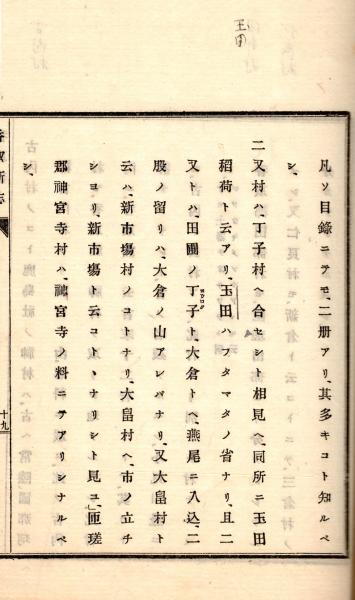 玉田
凡ソ目錄ニテモ、二册アリ、其多キコト知ルベ
シ、
二又村ハ、丁子村ヘ合セシト相見ヘ、同所ニ玉田
稻荷ト云アリ、玉田ハフタマタノ省ナリ、且二
又トハ、田圃ノ丁子ト、大倉トヘ、燕尾ニ入込、二
股ノ留リハ、大倉ノ山アレバナリ、又大畠村ト
云ハ、新市場村ノコトナリ、大畠村ヘ、市ノ立チ
シヨリ、新市場ト云コトヽナリシト見ユ、匝瑳
郡神宮寺村ハ、神宮寺ノ料ニテアリシナルベ
シ、
十九